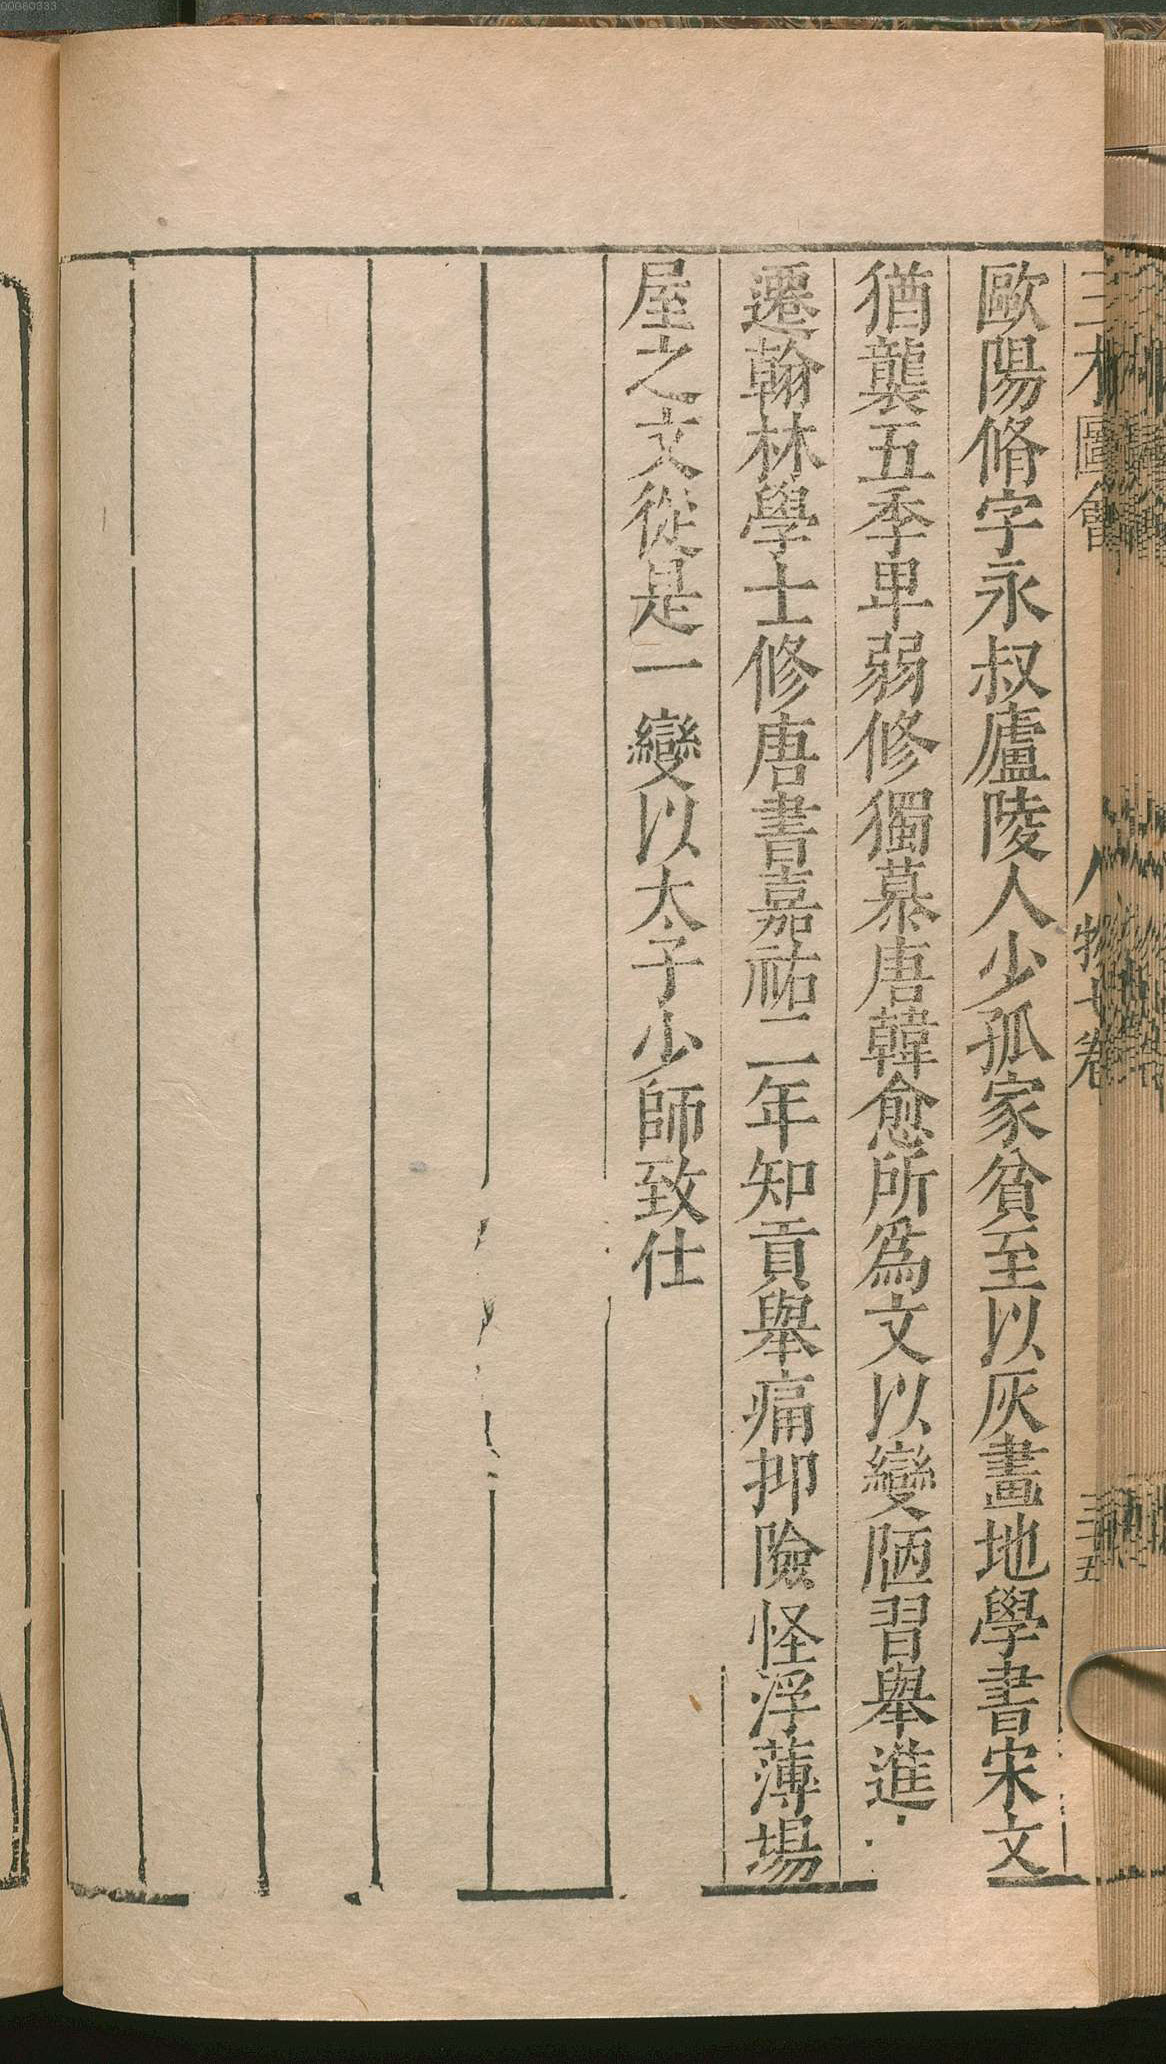 歐陽脩字永叔廬陵人少孤家貧至以灰畫地學書宋文
猶襲五季卑弱修獨慕唐韓愈所爲文以變陋習舉進
遷翰林學士修唐書嘉祐二年知貢舉痛抑險怪浮薄場
屋之文從是一變以太子少師致仕
圖會
人物七卷
三十五
00060333